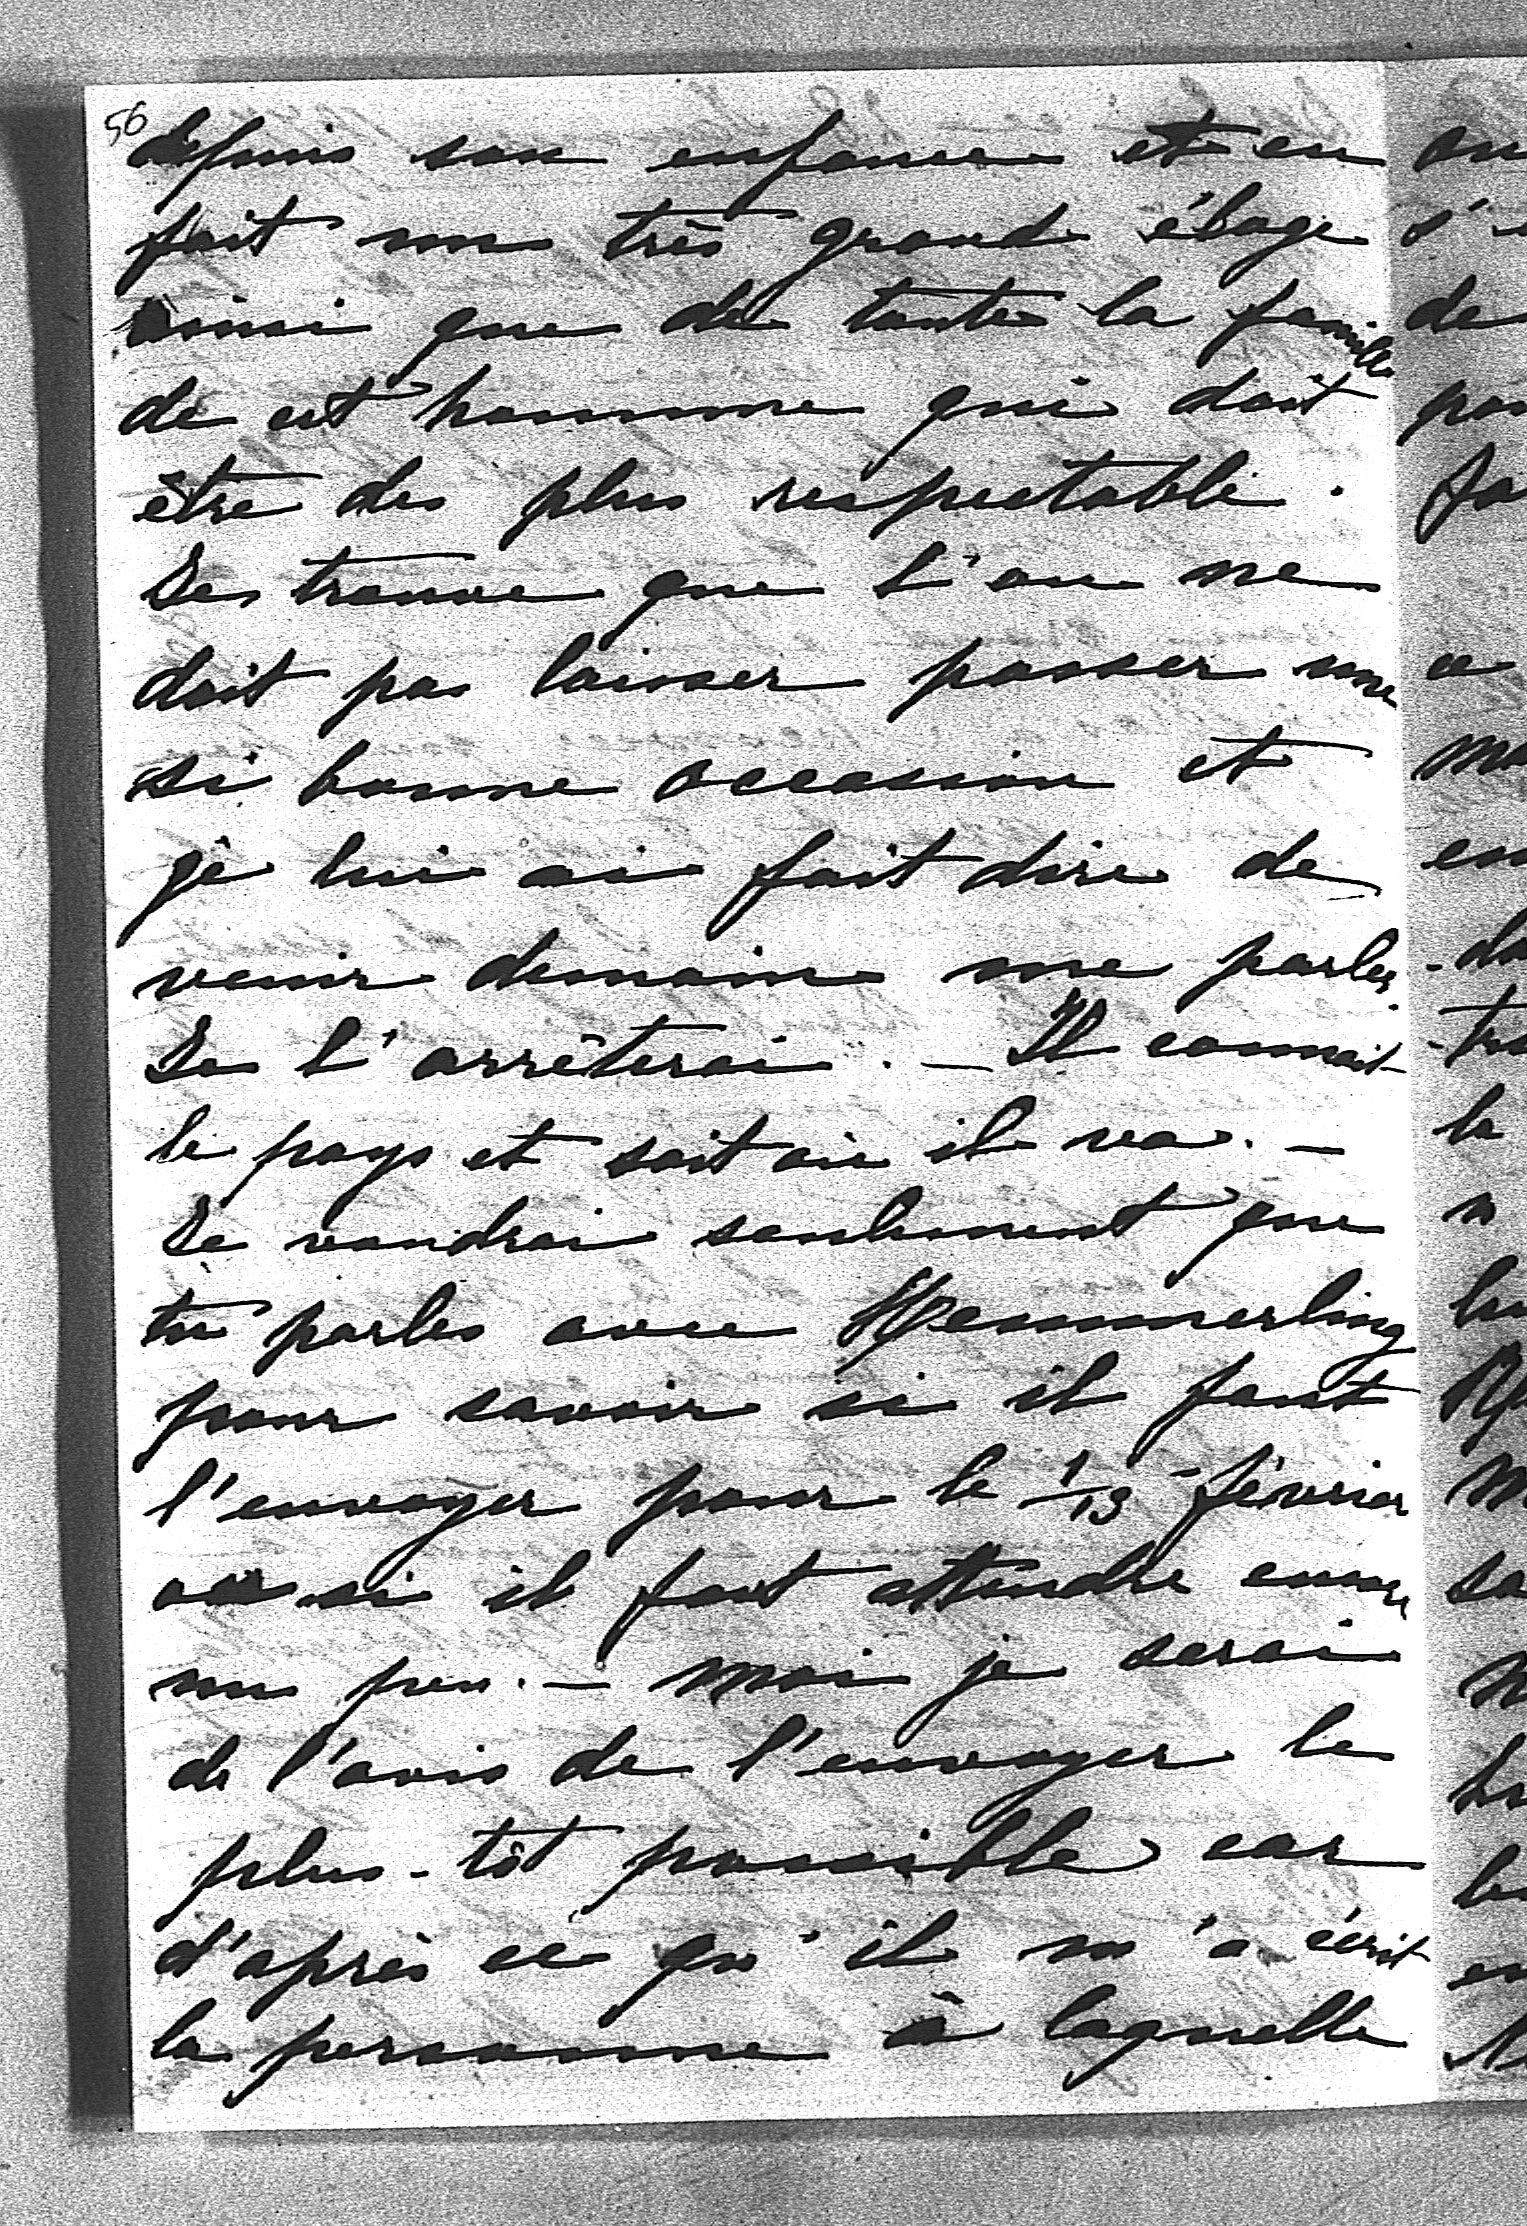 56
depuis son enfance et en
fait un très grand éloge
ainsi que de toute la famille
de cet homme qui doit
être des plus respectable.
Je trouve que l'on ne
doit pas laisser passer une
si bonne occasion et
je lui ai fait dire de
venir demain me parler.
Je l'arrêterai. — Il connait
le pays et sait où il va. —
Je voudrai seulement que
tu parles avec Hemmerling
pour savoir si il faut
l'envoyer pour le 1/13 février
ou si il faut attendre encore
un peu. — Moi je serai
de l'avis de l'envoyer le
plus-tôt possible car
d'après ce qu'il m'a écrit
la personne à laquelle